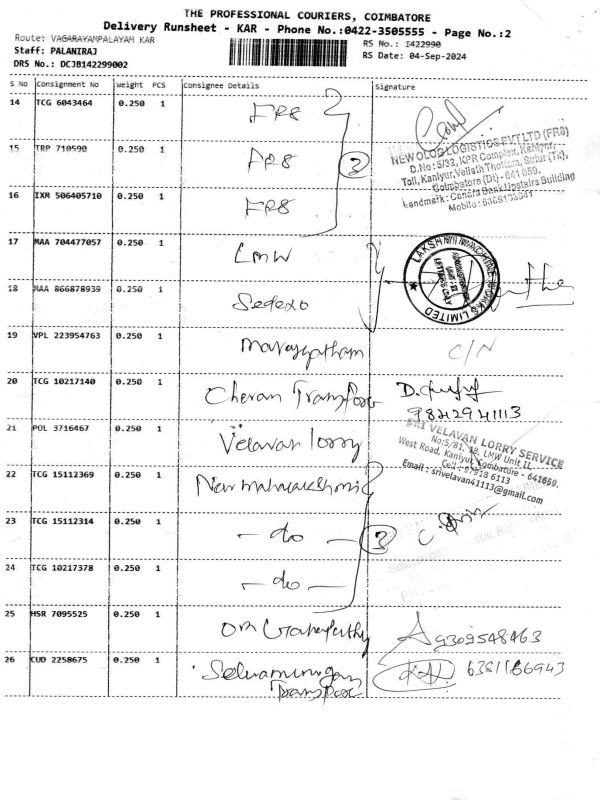 THE PROFESSIONAL COURIERS, COIMBATORE
Delivery Runsheet - KAR - Phone No.:0422-3505555 - Page No.:2
Route: VAGARAYAMPALAYAM KAR
RS No.: I422990
Staff: PALANIRAJ
RS Date: 04-Sep-2024
DRS No.: DCJB142299002
S No Consignment No Weight PCS Consignee Details Signature
14 TCG 6043464 0.250 1 FR8
15 TRP 710590 0.250 1 FR8
3
NEW OLOG LOGISTICS PVT LTD (FR8)
D.No: 5/33, KPR Complex, Kaniyur,
Toll, Kaniyur, Vellath Thottam, Sulur (Tk),
Coimbatore (Dt) - 641 059.
Landmark: Canara Bank Upstairs Building
Mobile:
16 IXM 506405710 0.250 1 FR8
17 MAA 704477057 0.250 1 LMW
LAKSHMI MACHINE WORKS LIMITED
18 MAA 866878939 0.250 1 Sedexo
19 VPL 223954763 0.250 1 C/N
20 TCG 10217140 0.250 1 Cheran Transport D.
9842941113
21 POL 3716467 0.250 1 Velavan lorry
SRI VELAVAN LORRY SERVICE
No:5/81, 18, LMW Unit II,
West Road, Kaniyur, Coimbatore - 641659.
Cell: 97918 6113
Email: srivelavan41113@gmail.com
22 TCG 15112369 0.250 1 New mahalakshmi
23 TCG 15112314 0.250 1 - do - 3
24 TCG 10217378 0.250 1 - do -
25 HSR 7095525 0.250 1 Om Ganapathy 9309548463
26 CUD 2258675 0.250 1 Selvamurugan 6381186943
Transport